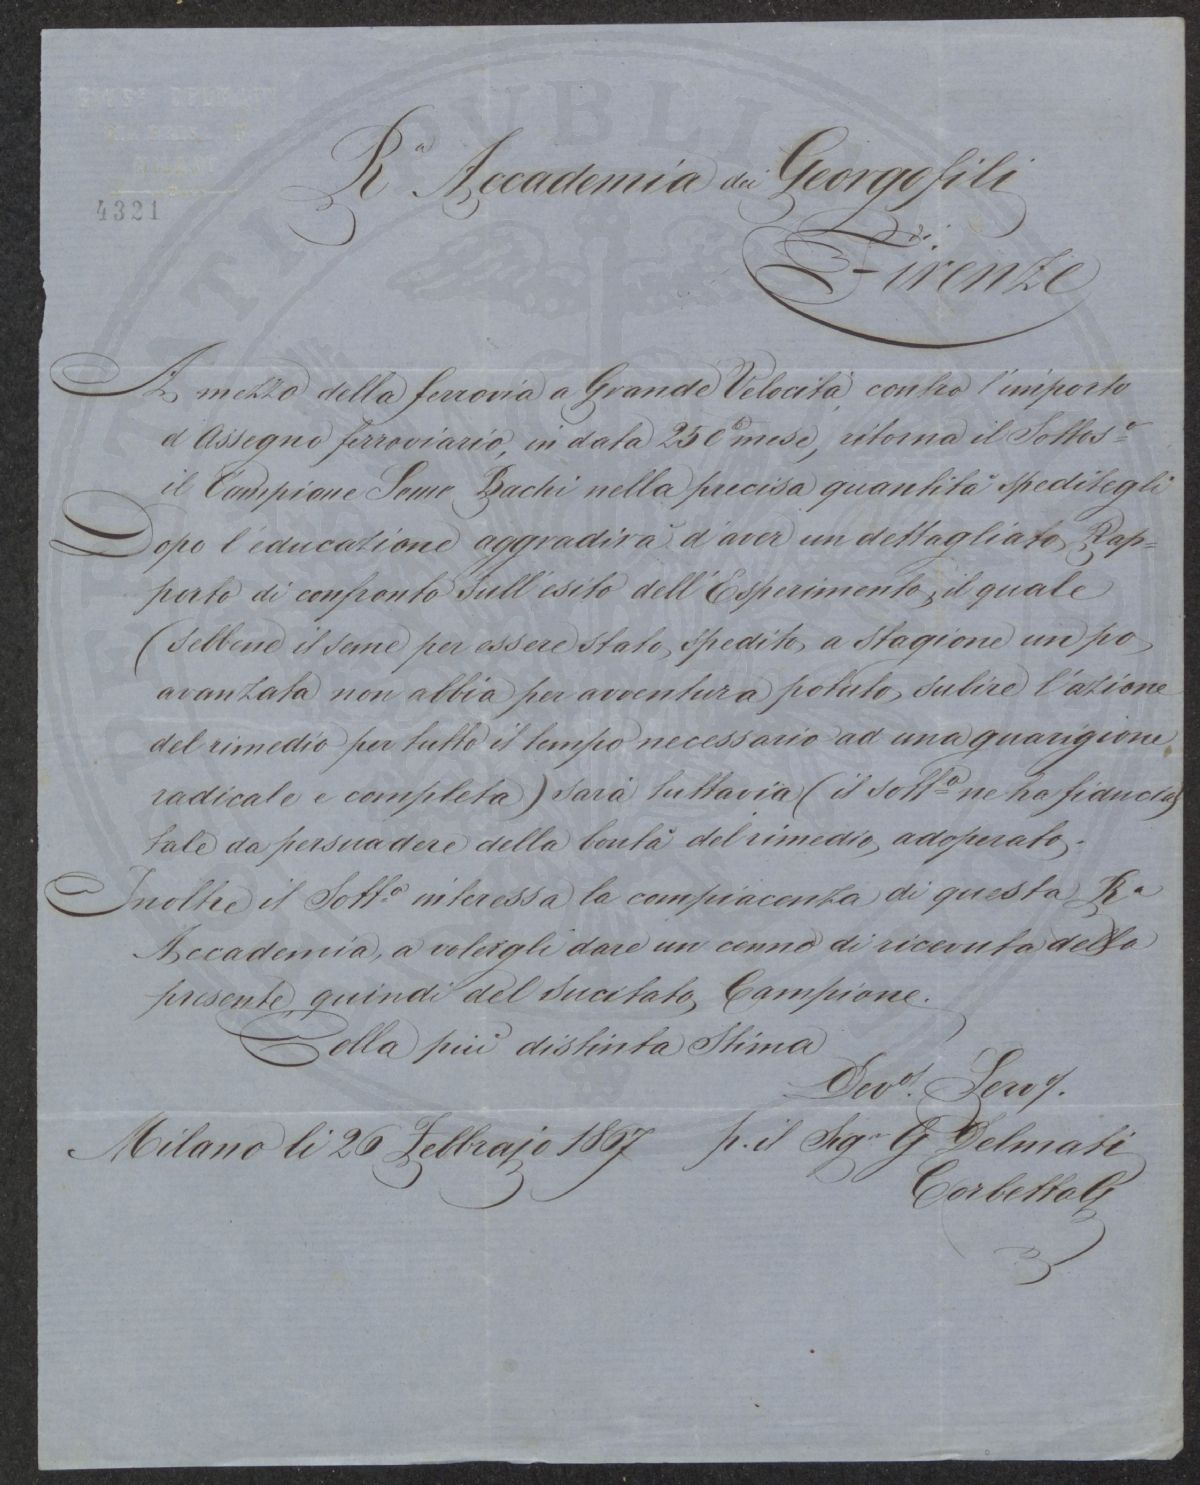 4321
R.a Accademia dei Georgofili
di
Firenze
A mezzo della ferrovia a Grande Velocità contro l'importo
d'Assegno ferroviario, in data 25 c.o mese, ritorna il Sottos.o
il Campione Seme Bachi nella precisa quantità speditegli
Dopo l'educazione aggradirà d'aver un dettagliato Rap=
porto di confronto sull'esito dell'Esperimento, il quale
(sebbene il seme per essere stato, spedito, a stagione un po
avanzata non abbia per avventura potuto, subire l'azione
del rimedio per tutto il tempo necessario ad una guarigione
radicale e completa) sarà tuttavia (il sott.o ne ha fiducia)
tale da persuadere della bontà del rimedio, adoperato.
Inoltre il Sott.o interessa la compiacenza di questa R.a
Accademia, a volergli dare un cenno di ricevuta della
presente, quindi del sucitato, Campione.
Colla più distinta Stima
Dev.o Servo.
Milano li 26 Febbrajo 1867 p. il Sig.r G Delmati
Corbetta G